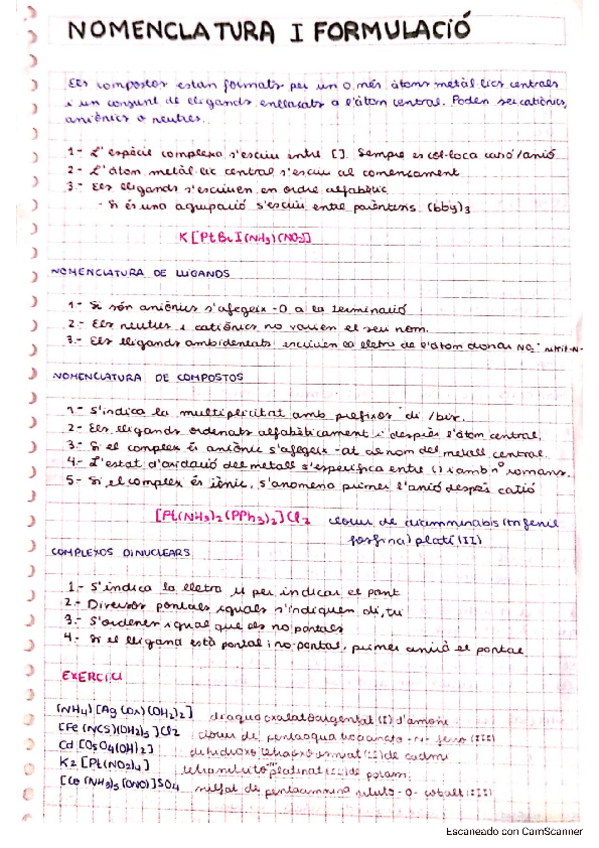 NOMENCLATURA I FORMULACIÓ
Els compostos estan formats per un o més àtoms metàl·lics centrals
i un conjunt de lligands enllaçats a l'àtom central. Poden ser catiònics,
aniònics o neutres.
1- L'espècie complexa s'escriu entre []. Sempre es col·loca catió/anió
2- L'àtom metàl·lic central s'escriu al començament
3- Els lligands s'escriuen en ordre alfabètic
- Si és una agrupació s'escriu entre parèntesis (bby)3
K[PtBrI(NH3)(NO2)]
NOMENCLATURA DE LLIGANDS
1- Si són aniònics s'afegeix -O a la terminació
2- Els neutres i catiònics no varien el seu nom.
3- Els lligands ambidentats escriuen la lletra de l'àtom donar NO2- nitrit-N-
NOMENCLATURA DE COMPOSTOS
1- S'indica la multiplicitat amb prefixos di/bis.
2- Els lligands ordenats alfabèticament i després l'àtom central.
3- Si el complex és aniònic s'afegeix -at al nom del metall central.
4- L'estat d'oxidació del metall s'especifica entre () i amb nº romans.
5- Si el complex és iònic, s'anomena primer l'anió després catió
[Pt(NH3)2(PPh3)2]Cl2 clorur de diamminabis(trifenil
fosfina)platí(II)
COMPLEXOS DINUCLEARS
1- S'indica la lletra μ per indicar el pont
2- Diversos pontals iguals s'indiquen di, tri
3- S'ordenen igual que els no pontals
4- Si el lligand està pontal i no pontal, primer anirà el pontal
EXERCICI
(NH4)[Ag(Ox)(OH2)2] diaquaoxalatoargentat(I) d'amoni
[Fe(NCS)(OH2)5]Cl2 clorur de pentaaqua tiocianato-N-ferro(III)
Cd[OsO4(OH)2] dihidroxo tetraoxo osmiat de cadmi
K2[Pt(NO2)4] tetranitrito platinat(II) de potassi
[Co(NH3)5(ONO)]SO4 sulfat de pentaammina nitrito-O-cobalt(III)
Escaneado con CamScanner